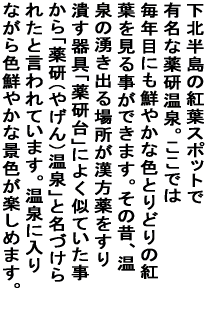 下北半島の紅葉スポットで
有名な薬研温泉。ここでは
毎年目にも鮮やかな色とりどりの紅
葉を見る事ができます。その昔、温
泉の湧き出る場所が漢方薬をすり
潰す器具「薬研台」によく似ていた事
から「薬研(やげん)温泉」と名づけら
れたと言われています。温泉に入り
ながら色鮮やかな景色が楽しめます。